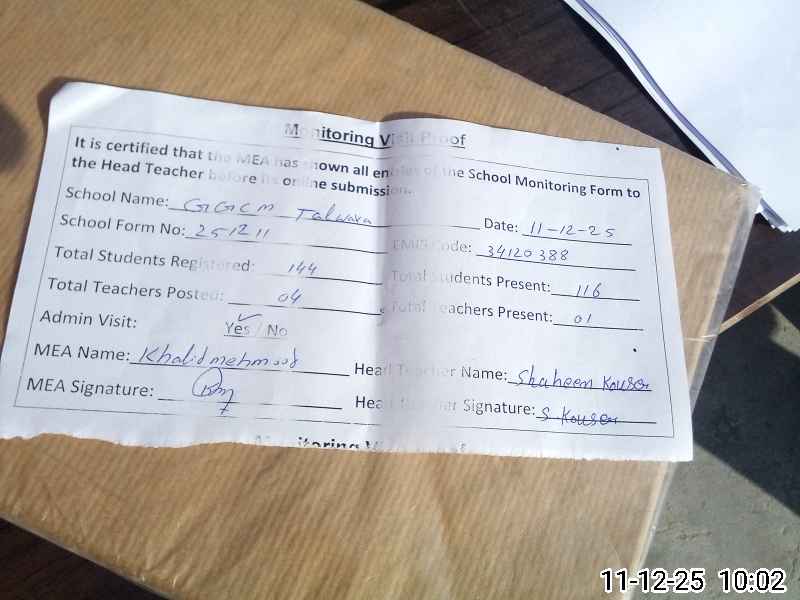 Monitoring Visit Proof
It is certified that the MEA has shown all entries of the School Monitoring Form to
the Head Teacher before its online submission.
School Name: GGCM Talwara Date: 11-12-25
School Form No: 251211 EMIS Code: 34120388
Total Students Registered: 144 Total Students Present: 116
Total Teachers Posted: 04 Total Teachers Present: 01
Admin Visit: Yes / No
MEA Name: Khalid mehmood Head Teacher Name: Shaheen Kouser
MEA Signature: Head Teacher Signature: S Kouser
Monitoring
11-12-25 10:02